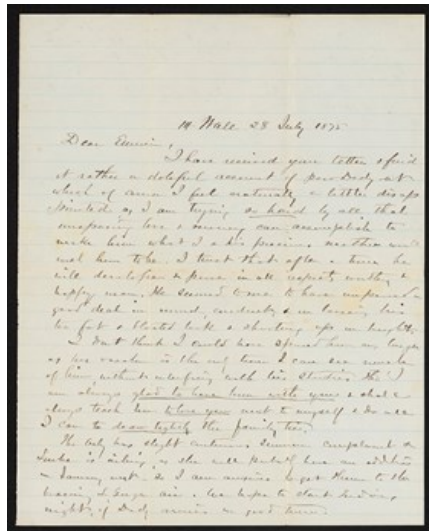 14 Wall 28 July 1875
Dear
I have received your letter & find
it rather a doleful account of poor Dody at
which of course I feel naturally a little disap
pointed as I am trying so hard by all that
unsparing love & money can accomplish to
make him what I & his precious mother
him to be. I trust that after a time he
will develop & in all respects a
happy man. He seemed to me to have improved a
good deal in mind, & in losing his
too fat & bloated look & shooting up in height.
I don't think I could have spared him any longer
as his vacation is the only time I can see much
of him without interfering with his studies tho' I
am always glad to have him with you & shall
always teach him to love you next to myself & do all
I can to draw tightly the family ties.
The baby has slight summer complaint &
is ailing, as she will have an addition
in January next. So I am anxious to get them to the
bracing air & we hope to start Friday
night, if Dody arrives in good time.